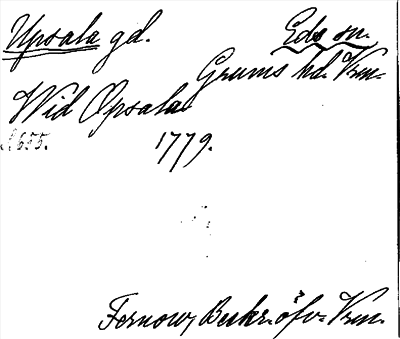 Upsala gd. Eds sn.
Grums hd. Vrm.
Wid Opsala
s. 655. 1779.
Fernow, Beskr. öfv. Vrm.